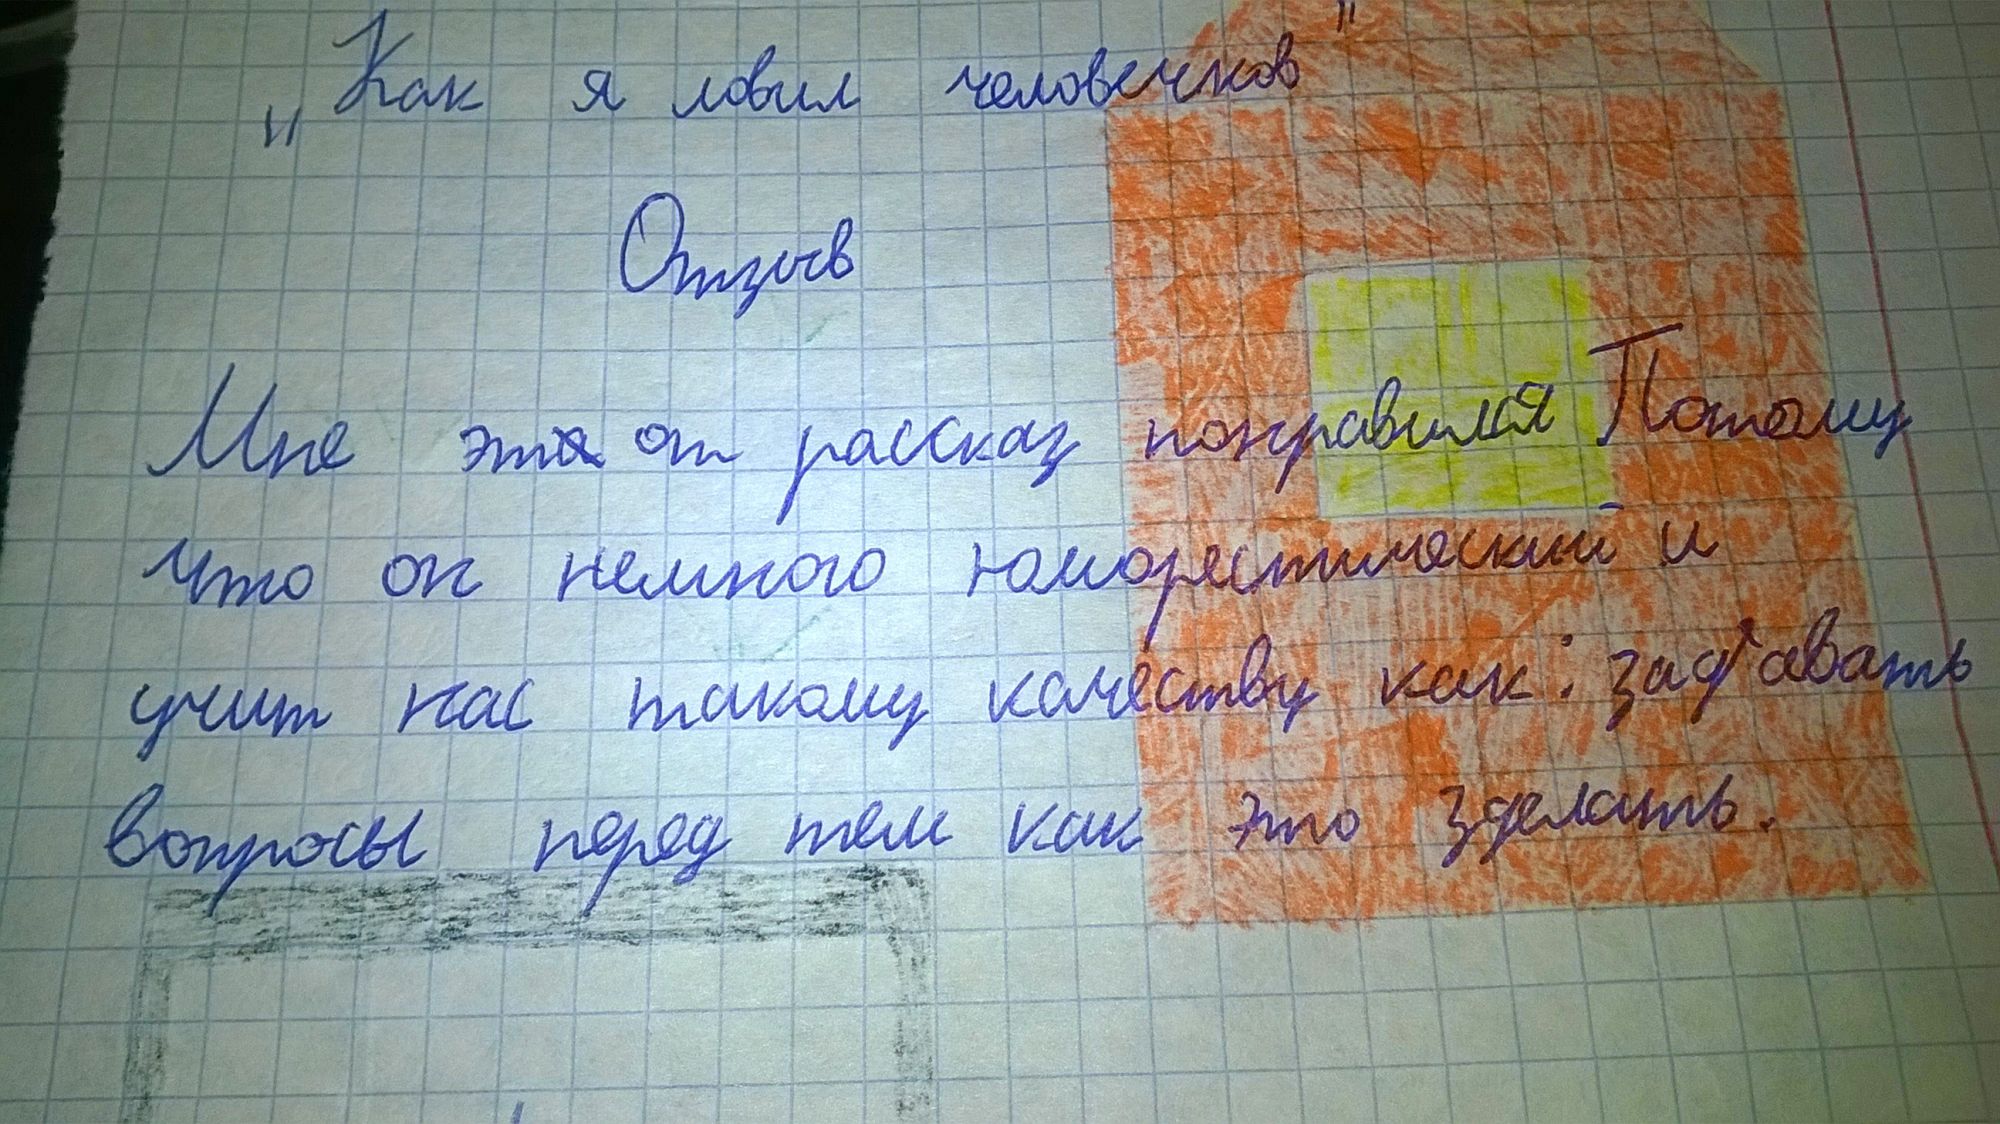 „Как я ловил человечков"
Отзыв
Мне этот рассказ понравился Потому
что он немного юморестический и
учит нас такому качеству как: задавать
вопросы перед тем как это зделать.